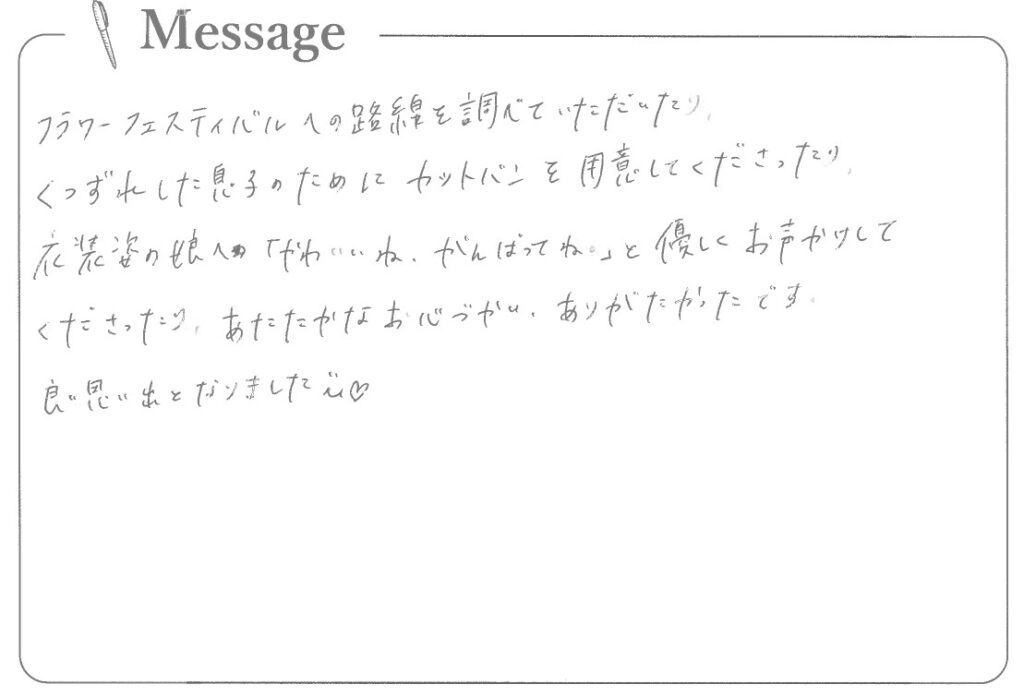 Message
フラワーフェスティバルへの路線を調べていただいたり、
くつずれした息子のためにカットバンを用意してくださったり、
衣装姿の娘への「かわいいね、がんばってね。」と優しくお声かけして
くださったり、あたたかなお心づかい、ありがたかったです。
良い思い出となりました♡